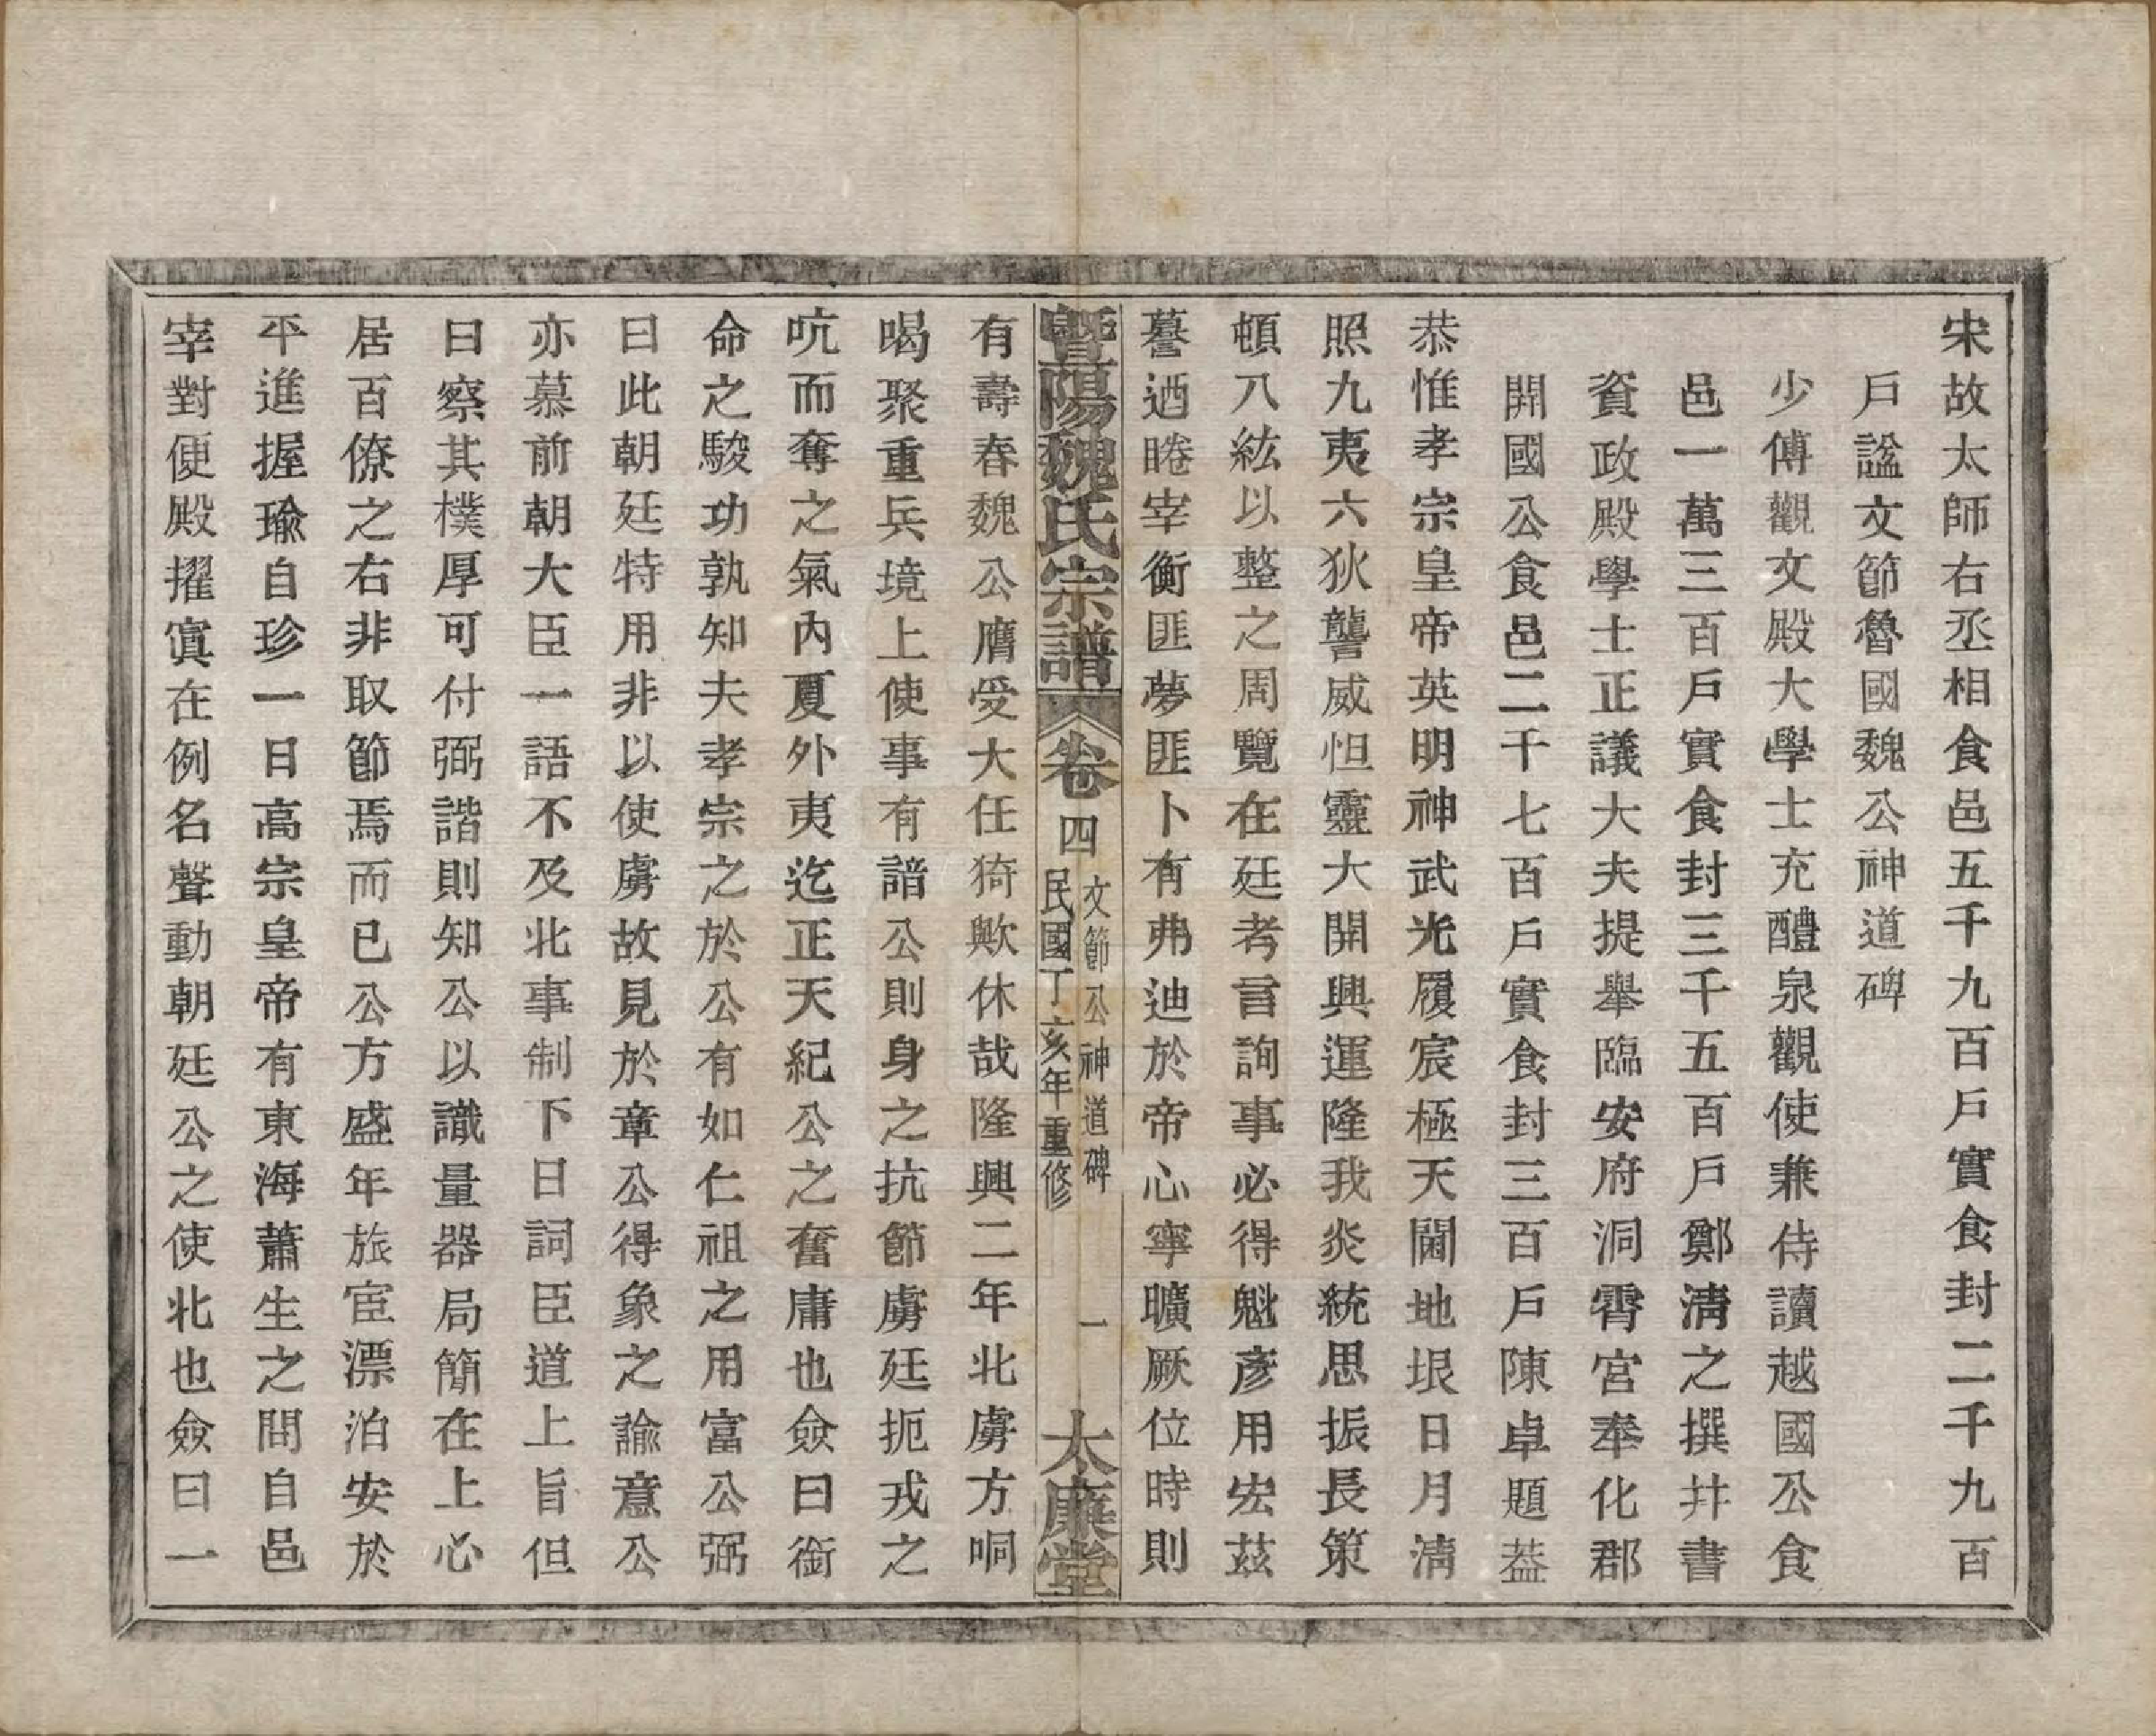 宋故太師右丞相食邑五千九百戶實食封二千九百
戶謚文節魯國魏公神道碑
少傅觀文殿大學士充醴泉觀使兼侍讀越國公食
邑一萬三百戶實食封三千五百戶鄭淸之撰幷書
資政殿學士正議大夫提舉臨安府洞霄宮奉化郡
開國公食邑二千七百戶實食封三百戶陳卓題葢
恭惟孝宗皇帝英明神武光履宸極天闢地垠日月淸
照九夷六狄讋威怛靈大開興運隆我炎統思振長策
頓八紘以整之周覽在廷考言詢事必得魁彥用宏茲
謩迺睠宰衡匪夢匪卜有弗迪於帝心寧曠厥位時則
暨陽魏氏宗譜 卷四 文節公神道碑 民國丁亥年重修 一 太廉堂
有壽春魏公膺受大任猗歟休哉隆興二年北虜方恫
喝聚重兵境上使事有諳公則身之抗節虜廷扼戎之
吭而奪之氣內夏外夷迄正天紀公之奮庸也僉曰銜
命之駿功孰知夫孝宗之於公有如仁祖之用富公弼
曰此朝廷特用非以使虜故見於章公得象之諭意公
亦慕前朝大臣一語不及北事制下日詞臣道上旨但
曰察其樸厚可付弼諧則知公以識量器局簡在上心
居百僚之右非取節焉而已公方盛年旅宦漂泊安於
平進握瑜自珍一日高宗皇帝有東海蕭生之問自邑
宰對便殿擢寘在例名聲動朝廷公之使北也僉曰一